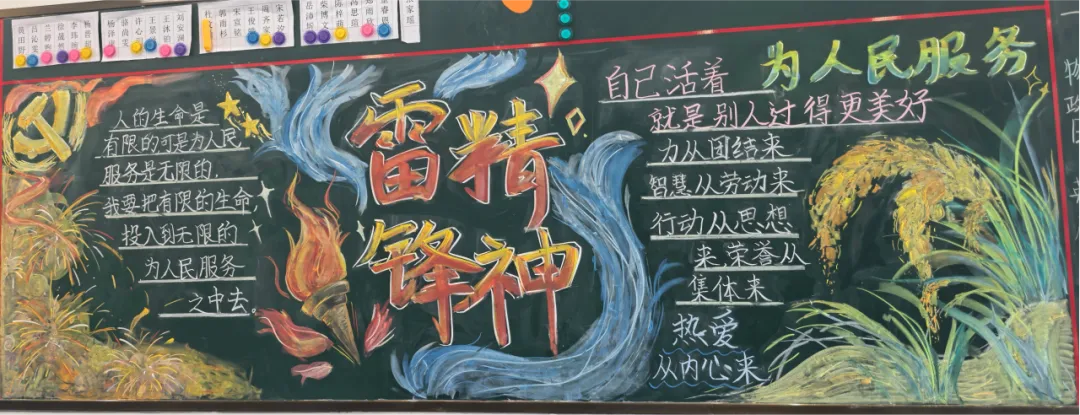 人的生命是
有限的可是为人民
服务是无限的.
我要把有限的生命,
投入到无限的
为人民服务
之中去。
雷锋
精神
为人民服务
自己活着
就是别人过得更美好
力从团结来
智慧从劳动来
行动从思想
来荣誉从
集体来
热爱
从内心来